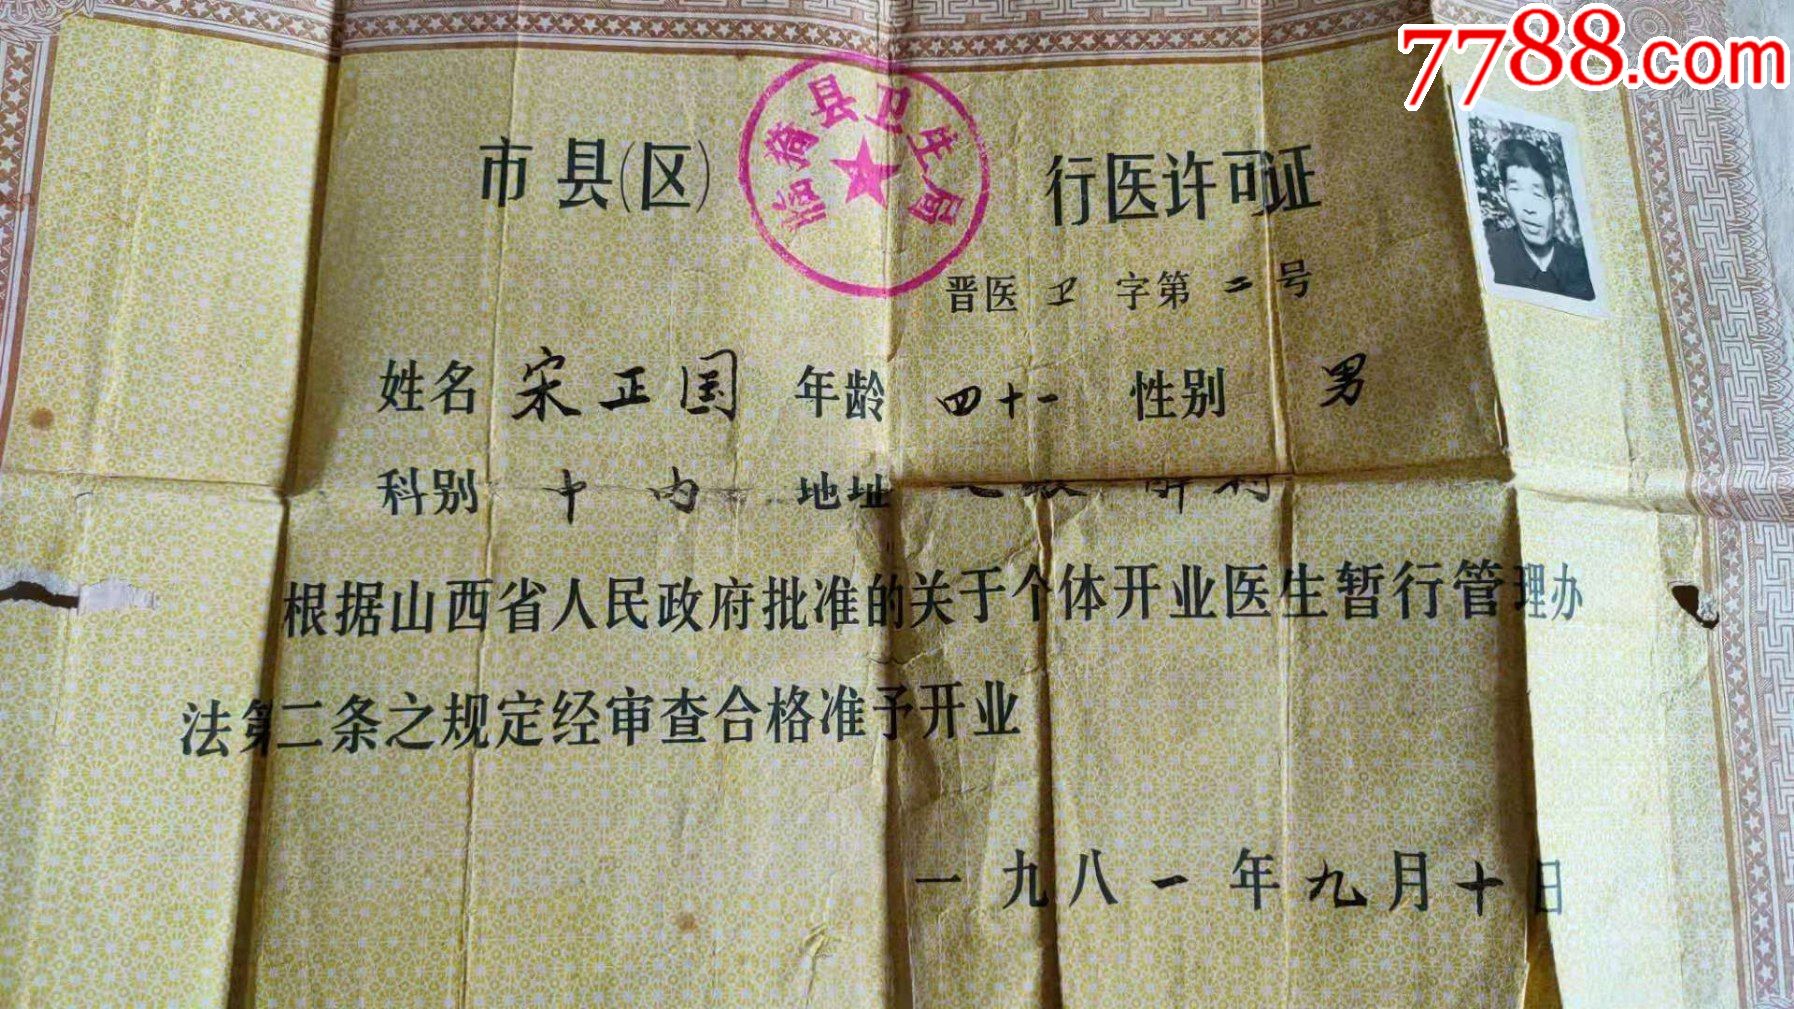 7788.com
临猗县卫生局
市县(区) 行医许可证
晋医卫字第二号
姓名 宋正国 年龄 四十一 性别 男
科别 中内 地址
根据山西省人民政府批准的关于个体开业医生暂行管理办
法第二条之规定经审查合格准予开业
一九八一年九月十日